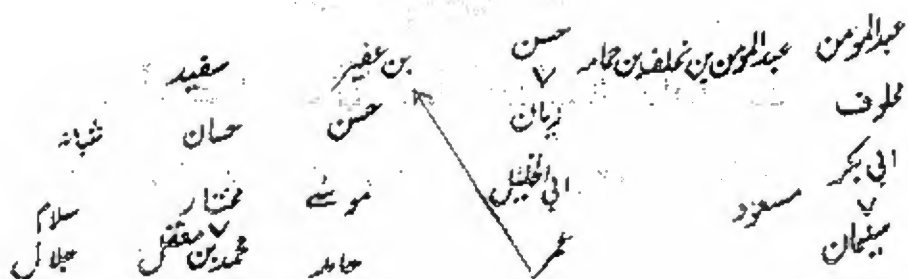 عبدالمومن عبدالمومن بن نخلف بن حمامہ حسن بن عفیر سفید
مخلوف زیان حسن حسان
ابی بکر مسعود ابی الخلیل موسٰے مختار سلام
سلیمان عمر عامر محمد بن مقفل جلال